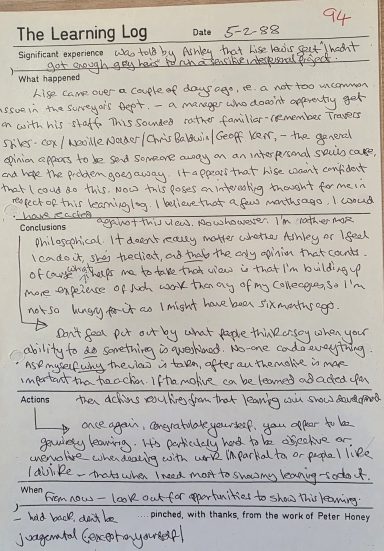 94
The Learning Log Date 5-2-88
Significant experience was told by Ashley that Lise hadn't
got enough grey hairs to run a sensitive interpersonal project.
What happened
Lise came over a couple of days ago, re. a not too uncommon
issue in the Surveyors Dept. - a manager who doesn't apparently get
on with his staff. This sounded rather familiar - remember Travers
Cox / Neville / Chris Baldwin / Geoff Kerr, - the general
opinion appears to be send someone away on an interpersonal skills course,
and hope the problem goes away. It appears that Lise wasn't confident
that I could do this. Now this poses an interesting thought for me in
respect of this learning log. I believe that a few months ago I would
have reacted against this view. Now however I'm rather more
Conclusions
philosophical. It doesn't really matter whether Ashley or I feel
I can do it, she's the client, and that's the only opinion that counts.
Of course what helps me to take that view is that I'm building up
more experience of such work than any of my colleagues, so I'm
not so hungry for it as I might have been six months ago.
Don't feel put out by what people think or say when your
ability to do something is questioned. No-one can do everything.
Ask myself why the view is taken, after all the motive is more
important than the action. If the motive can be learned and acted upon
Actions then actions resulting from that learning will show development
once again, congratulate yourself, you appear to be
genuinely learning. It's particularly hard to be objective or
unemotive when dealing with work important to or people I like
/ dislike - that's when I need most to show my learning - so do it.
When
From now - look out for opportunities to show this learning.
- hold back, don't be ...pinched, with thanks, from the work of Peter Honey
judgemental (except on yourself)